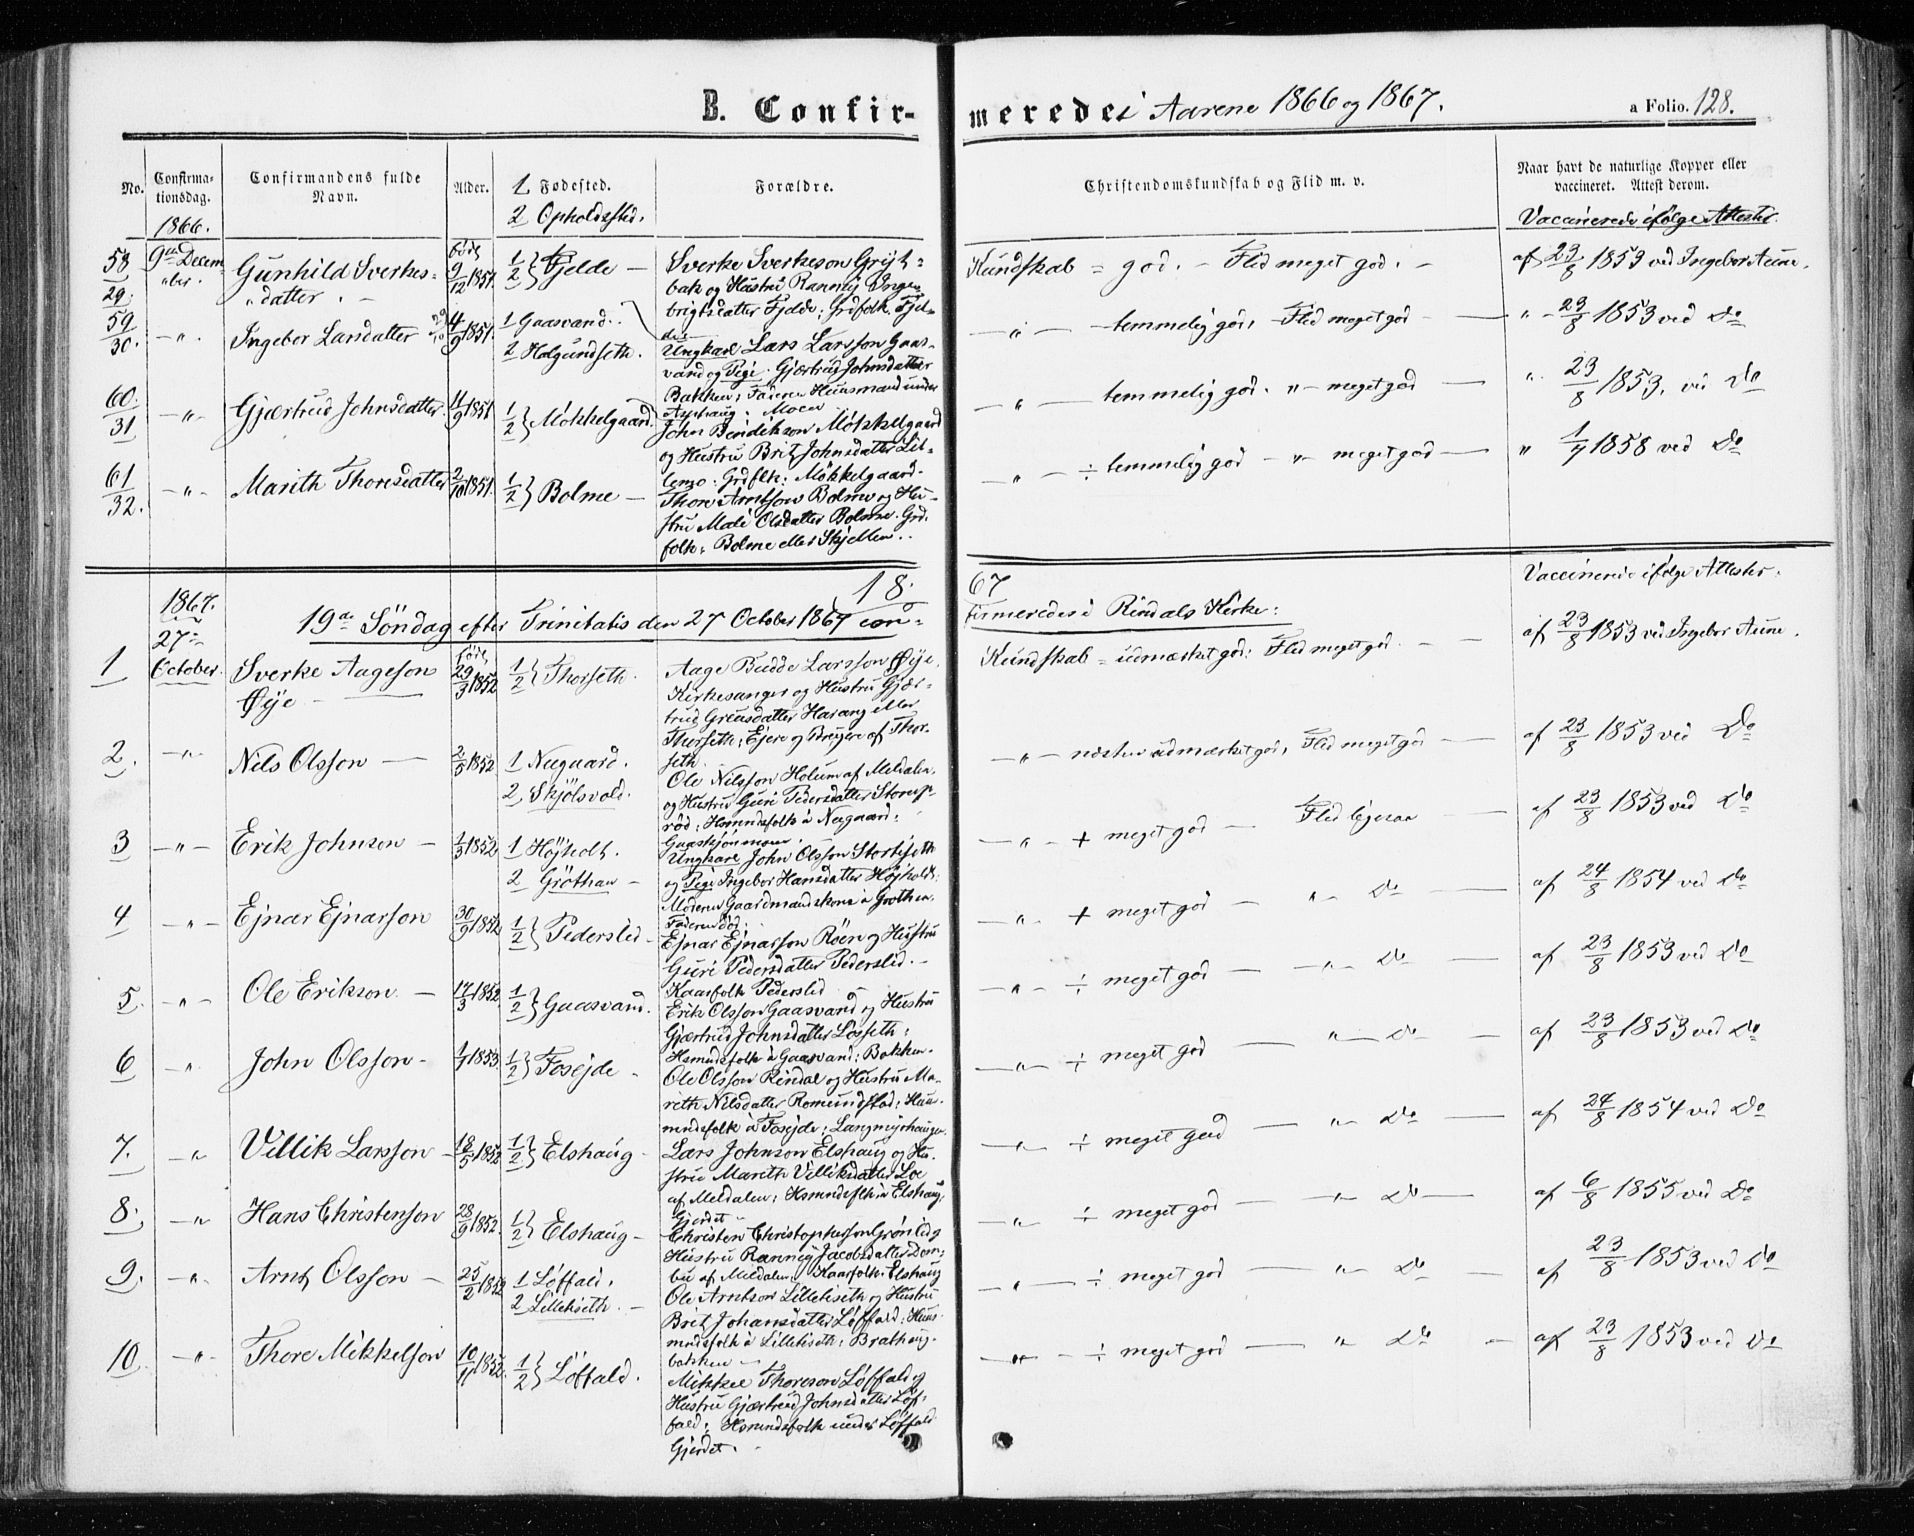 B. Confir-
meredes i Aarene 1866 og 1867.
a Folio. 128.
No.
Confirma-
tionsdag.
1866.
Confirmandens fulde
Navn.
Alder.
1 Fødested.
2 Opholdssted.
Forældre.
Christendomskundskab og Flid m. v.
Naar havt de naturlige Kopper eller
vaccineret. Attest derom.
Vaccinerede ifølge Attester.
58
29.
9de Decem-
ber.
Gunhild Sverkes-
datter.
født
9/12 1851.
1/2 } Fjelde —
Sverke Sverkeson Grigt-
bak og Hustru Rannej Inge-
brigtsdatter Fjelde: Grdfolk. Fjel-
de.
Kundskab = god. - Flid meget god. -
af 23/8 1853 ved Ingebor Aune.
59
30.
— " -
Ingebor Larsdatter
4/9 1851.
1 Gaasvand.
2 Helgundseth.
Ungkarl Lars Larsson Gaas-
vand og Pige Gjertrud Johnsdatter
Bakken; Faderen Huusmand under
Asphaug. Moen
— " — temmelig god, Flid meget god —
" - 23/8 1853 ved Do
60
31
— " -
Gjærtrud Johnsdatter
11/9 1851
1/2 } Møkkelgaard.
John Bendikson Møkkelgaard
og Hustru Brit Johnsdatter Lil-
lemo. Grdflk: Møkkelgaard.
— " — temmelig god. " — meget god —
" 23/8 1853, ved Do
61
32.
— " -
Marith Thoresdatter
2/10 1851.
1/2 } Bolme —
Thore Arntsson Bolme og Hu-
stru Mali Olsdatter Bolme. Grd.
folk; Bolme eller Skjellen.
— " — ÷ temmelig god - " - meget god —
" 1/7 1858 ved Do
18
67
1867.
19de Søndag efter Trinitatis den 27 October 1867 con-
firmeredes i Rindals Kirke:
Vaccinerede ifølge Attester.
1
27de
October.
Sverke Aageson
Øye —
født
29/3 1852
1/2 } Thorseth.
Aage Budde Larsson Øye,
Kirkesanger og Hustru Gjær-
trud Greusdatter Harang eller
Thorseth; Ejere og Brugere af Thor-
seth.
Kundskab = udmærket god: Flid meget god. —
af 23/8 1853 ved Ingebor Aune.
2.
— " -
Nils Olsson —
2/5 1852
1 Nugaard.
2 Skjølsvold.
Ole Nilsson Holum af Meldalen,
og Hustru Guri Pedersdatter Storrøs-
rød: Hsmndsfolk à Nugaard:
Gaasskjønmoen.
— " — næsten udmærket god, Flid meget god —
af 23/8 1853 ved Do
3
— " —
Erik Johnson —
1/3 1852
1 Højholt.
2 Grøthan —
Ungkarl John Olsson Storliseth
og Pige Ingebor Hansdatter Højholdt:
Moderen Gaardmandskone à Grothen.
Faderen død.
— " — + meget god — Flid ligesaa
af 23/8 1853 ved Do
4
— " —
Ejnar Ejnarson
30/9 1852
1/2 } Pederslid —
Ejnar Ejnarsson Røen og Hustru
Guri Pedersdatter Pederslid. —
Kaarfolk Pederslid
— " — + meget god — " — Do —
af 24/8 1854 ved Do
5.
— " —
Ole Erikson —
17/3 1852
1/2 } Gaasvand.
Erik Olsson Gaasvand og Hustru
Gjærtrud Johnsdatter Løseth:
Hsmndsfolk à Gaasvand: Bakken.
— " — ÷ meget god — " — Do —
af 23/8 1853 ved Do
6
"
John Olsson —
1/7 1853
1/2 } Fosejde —
Ole Olsson Rindal og Hustru Ma-
reth Nilsdatter Romundstad: Huus-
mndsfolk à Fosejde; Langmyrhaugen.
— " — ÷ meget god — " — Do —
af 23/8 1853 ved Do
7.
"
Villik Larsson —
18/5 1852
1/2 } Elshaug —
Lars Johnson Elshaug og Hu-
stru Marith Villiksdatter Loe
af Meldalen; Hsmndsflk à Elshaug,
Gjerdet
— " — ÷ meget god — " — Do —
af 24/8 1854 ved Do
8.
"
Hans Christenson
28/9 1852.
1/2 } Elshaug —
Christen Christophersson Grønlid og
Hustru Rannej Jacobsdatter Dom-
bu af Meldalen; Kaarfolk: Elshaug
" ÷ meget god — " — Do —
af 6/8 1855 ved Do
9.
— " -
Arnt Olsson —
25/2 1852
1 Løffald.
2 Lilleliseth. —
Ole Arntson Lilleliseth og Hustru
Brit Johansdatter Løffald: Huus-
mndsfolk à Lilleliseth: Brathaug-
bakken —
" — ÷ meget god — " Do —
af 23/8 1853 ved Do
10
— " -
Thore Mikkelson
10/11 1852.
1/2 } Løffald.
Mikkel Thoreson Løffald og
Hustru Gjærtrud Johnsdatter Løf-
fald; Hsmndsfolk under Løffald.
Gjerdet.
— " — ÷ meget god — " Do —
af 23/8 1853 ved Do